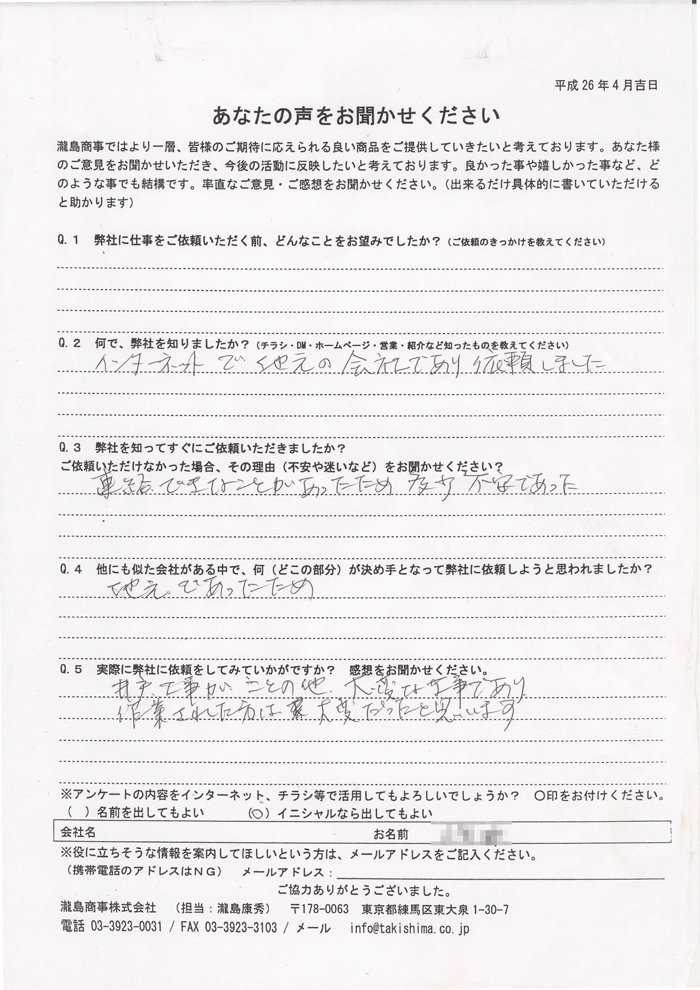 平成26年4月吉日
あなたの声をお聞かせください
瀧島商事ではより一層、皆様のご期待に応えられる良い商品をご提供していきたいと考えております。あなた様
のご意見をお聞かせいただき、今後の活動に反映したいと考えております。良かった事や嬉しかった事など、ど
のような事でも結構です。率直なご意見・ご感想をお聞かせください。(出来るだけ具体的に書いていただける
と助かります)
Q.1 弊社に仕事をご依頼いただく前、どんなことをお望みでしたか？(ご依頼のきっかけを教えてください)
Q.2 何で、弊社を知りましたか？(チラシ・DM・ホームページ・営業・紹介など知ったものを教えてください)
インターネットで地元の会社であり依頼しました
Q.3 弊社を知ってすぐにご依頼いただきましたか？
ご依頼いただけなかった場合、その理由（不安や迷いなど）をお聞かせください？
連絡できなことがあったため 多少 不安であった
Q.4 他にも似た会社がある中で、何（どこの部分）が決め手となって弊社に依頼しようと思われましたか？
地元であったため
Q.5 実際に弊社に依頼をしてみていかがですか？ 感想をお聞かせください。
井戸工事が ことの他 大変な工事であり
作業された方は 大変だったと思います
※アンケートの内容をインターネット、チラシ等で活用してもよろしいでしょうか？ ○印をお付けください。
( ) 名前を出してもよい (○) イニシャルなら出してもよい
会社名 お名前
※役に立ちそうな情報を案内してほしいという方は、メールアドレスをご記入ください。
(携帯電話のアドレスはNG) メールアドレス：
ご協力ありがとうございました。
瀧島商事株式会社 (担当：瀧島康秀) 〒178-0063 東京都練馬区東大泉1-30-7
電話 03-3923-0031 / FAX 03-3923-3103 / メール info@takishima.co.jp